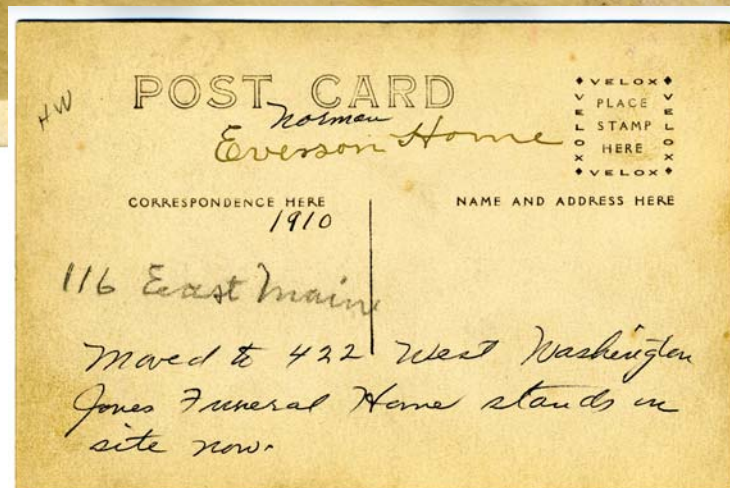 HW
POST CARD
Norman
Everson Home
VELOX
VELOX
PLACE
STAMP
HERE
VELOX
VELOX
CORRESPONDENCE HERE
NAME AND ADDRESS HERE
1910
116 East Main
Moved to 422 West Washington
Jones Funeral Home stands on
site now.